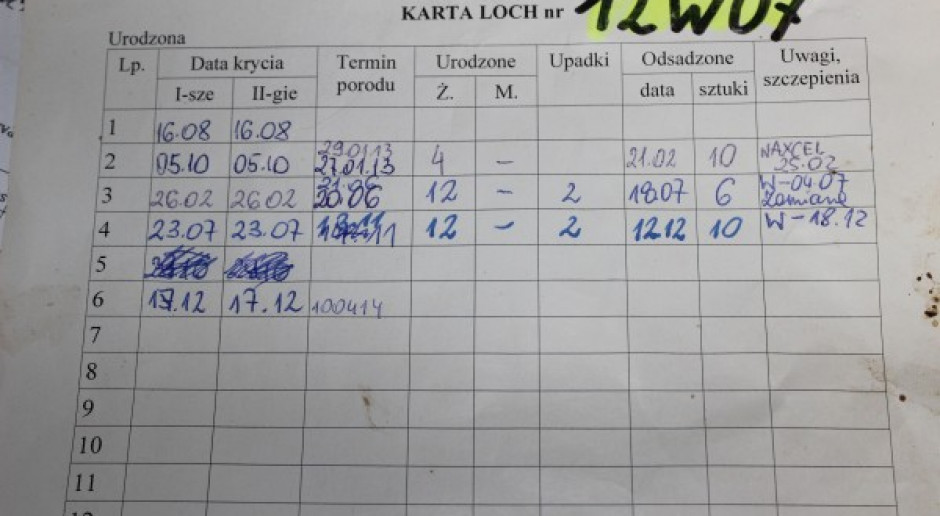 KARTA LOCH nr 12W07
Urodzona
Lp. Data krycia Termin porodu Urodzone Upadki Odsadzone Uwagi, szczepienia
I-sze II-gie Ż. M. data sztuki
1 16.08 16.08
29.01.13
2 05.10 05.10 27.01.13 4 – 21.02 10 NAXCEL 25.02
3 26.02 26.02 20.06 12 – 2 18.07 6 W-04.07 Zamiana
4 23.07 23.07 12 – 2 12.12 10 W-18.12
5
6 17.12 17.12 100414
7
8
9
10
11